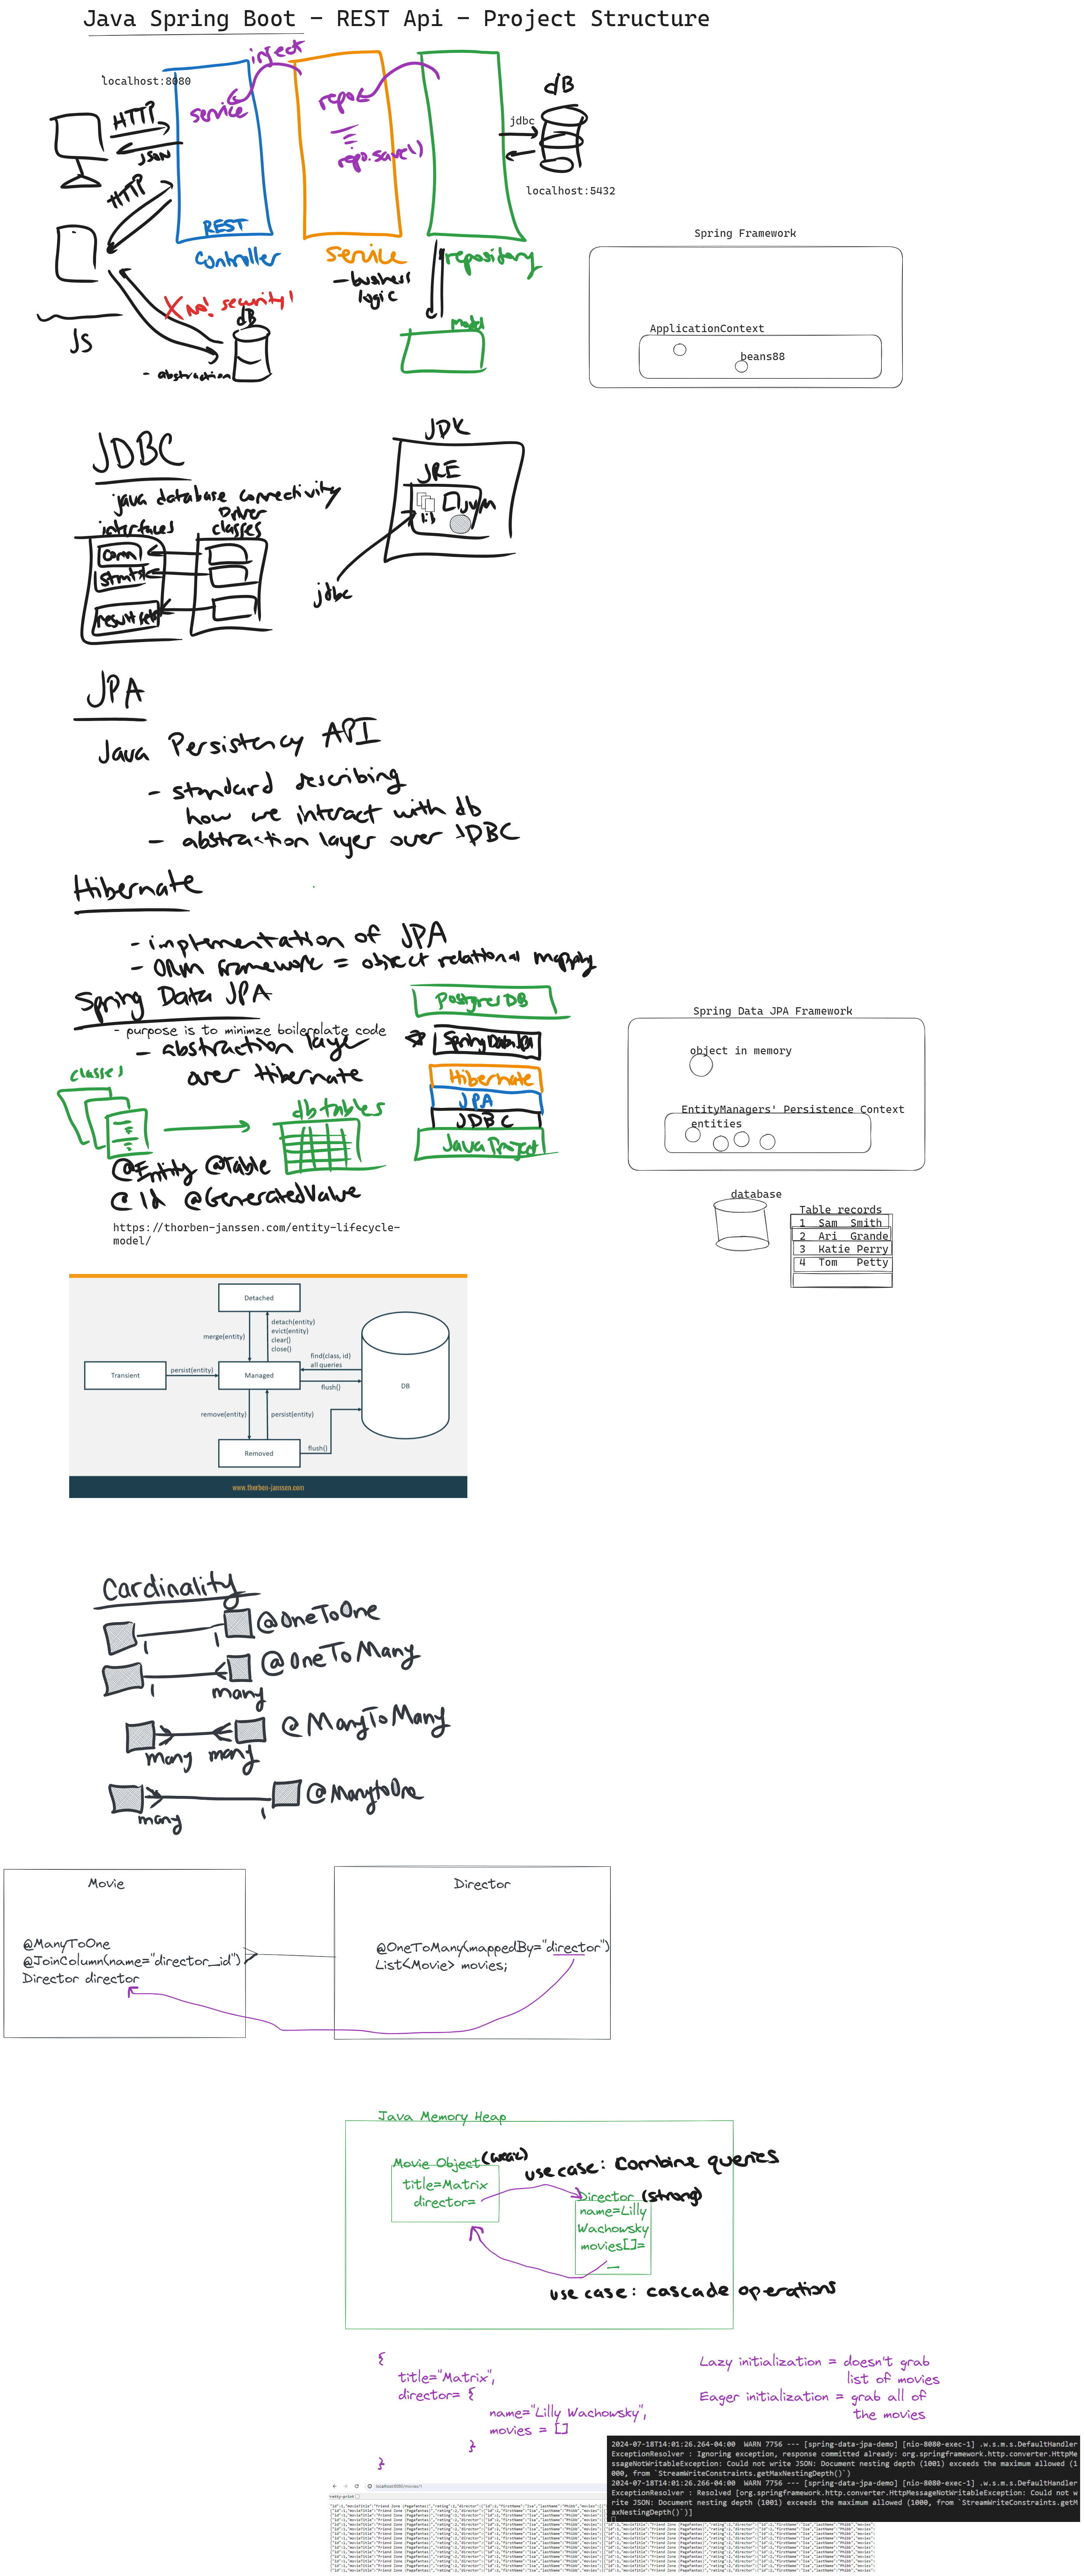 Java Spring Boot - REST Api - Project Structure
inject
localhost:8080
HTTP
JSON
HTTP
service
REST
controller
repo
repo.save()
service
- business
logic
repository
model
jdbc
dB
localhost:5432
JS
X no! security!
dB
- abstraction
Spring Framework
ApplicationContext
beans88
JDBC
java database connectivity
interfaces
Driver
classes
conn
stmt
result set
JDK
JRE
lib
JVM
jdbc
JPA
Java Persistency API
- standard describing
how we interact with db
- abstraction layer over JDBC
Hibernate
- implementation of JPA
- ORM framework = object relational mapping
Spring Data JPA
- purpose is to minimze boilerplate code
- abstraction layer
over Hibernate
classes
db tables
@Entity @Table
@Id @GeneratedValue
Postgres DB
Spring Data JPA
Hibernate
JPA
JDBC
Java Project
Spring Data JPA Framework
object in memory
EntityManagers' Persistence Context
entities
database
Table records
1 Sam Smith
2 Ari Grande
3 Katie Perry
4 Tom Petty
https://thorben-janssen.com/entity-lifecycle-
model/
Detached
merge(entity)
detach(entity)
evict(entity)
clear()
close()
Transient
persist(entity)
Managed
find(class, id)
all queries
flush()
DB
remove(entity)
persist(entity)
Removed
flush()
www.thorben-janssen.com
Cardinality
1 1 @OneToOne
1 many @OneToMany
many many @ManyToMany
many 1 @ManytoOne
Movie
@ManyToOne
@JoinColumn(name="director_id")
Director director
Director
@OneToMany(mappedBy="director")
List<Movie> movies;
Java Memory Heap
Movie Object (weak)
title=Matrix
director=
use case: combine queries
Director (strong)
name=Lilly
Wachowsky
movies[]=
use case: cascade operations
{
title="Matrix",
director= {
name="Lilly Wachowsky",
movies = []
}
}
Lazy initialization = doesn't grab
list of movies
Eager initialization = grab all of
the movies
2024-07-18T14:01:26.264-04:00 WARN 7756 --- [spring-data-jpa-demo] [nio-8080-exec-1] .w.s.m.s.DefaultHandler
ExceptionResolver : Ignoring exception, response committed already: org.springframework.http.converter.HttpMe
ssageNotWritableException: Could not write JSON: Document nesting depth (1001) exceeds the maximum allowed (1
000, from `StreamWriteConstraints.getMaxNestingDepth()`)
2024-07-18T14:01:26.266-04:00 WARN 7756 --- [spring-data-jpa-demo] [nio-8080-exec-1] .w.s.m.s.DefaultHandler
ExceptionResolver : Resolved [org.springframework.http.converter.HttpMessageNotWritableException: Could not w
rite JSON: Document nesting depth (1001) exceeds the maximum allowed (1000, from `StreamWriteConstraints.getM
axNestingDepth()`)]
localhost:8080/movies/1